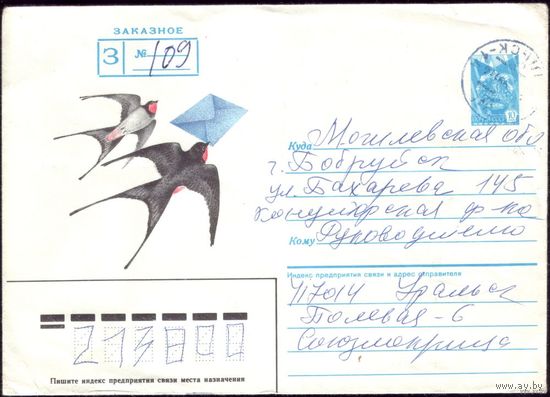 ЗАКАЗНОЕ
З № 109
Куда Могилевская обл
г. Бобруйск
ул. Бахарева 145
ф-ка
Кому Руководителю
Индекс предприятия связи и адрес отправителя
417014 Уральск
Полевая - 6
213800
Пишите индекс предприятия связи места назначения
www.ay.by